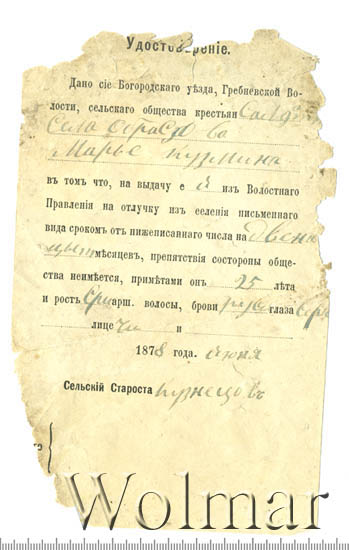 Удостовѣреніе.
Дано сіе Богородскаго уѣзда, Гребневской Во-
лости, сельскаго общества крестьян
Села
Марье Кузмина
въ томъ что, на выдачу е й изъ Волостнаго
Правленія на отлучку изъ селенія письменнаго
вида срокомъ отъ нижеписаннаго числа на двена
цыт мѣсяцевъ, препятствія состороны обще-
ства неимѣется, примѣтами онъ 25 лѣта
и ростъ Сре арш. волосы, брови русые глаза Серы
лице Чи и
1878 года. июня
Сельскій Староста Кузнецовъ
Wolmar